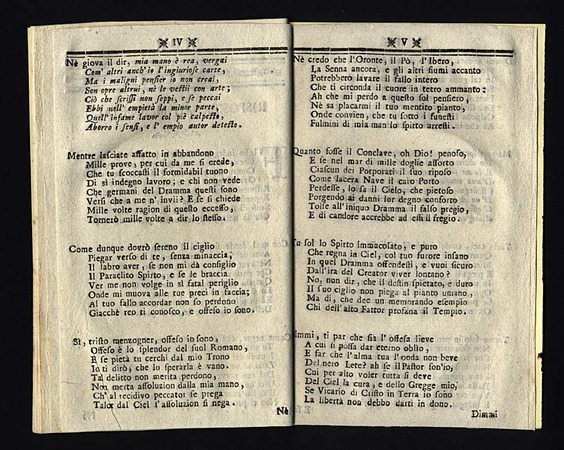 IV
Nè giova il dir, mia mano è rea, vergai
Com' altri anch' io l'ingiuriose carte,
Ma i maligni pensier io non creai,
Son opre altrui, nè le vestii con arte;
Ciò che scrissi non seppi, e se peccai
Ebbi nell' empietà la minor parte,
Quell' infame lavor col piè calpesto,
Aborro i sensi, e l' empio autor detesto.
Mentre lasciate affatto in abbandono
Mille prove, per cui da me si crede,
Che tu scoccasti il formidabil tuono
Di sì indegno lavoro; e chi non vede
Che germani del Dramma questi sono
Versi che a me n' invii? E se si chiede
Mille volte ragion di questo eccesso,
Tornerò mille volte a dir lo stesso.
Come dunque dovrò sereno il ciglio
Piegar verso di te, senza minaccia;
Il labro aver, se non mi dà consiglio
Il Paraclito Spirto, e se le braccia
Ver me non volge in sì fatal periglio
Onde mi muova alle tue preci in faccia;
Al tuo fallo accordar non so perdono
Giacchè reo ti conosco, e offeso io sono.
Sì, tristo menzogner, offeso io sono,
Offeso è lo splendor del suol Romano,
E se pietà tu cerchi dal mio Trono
Io ti dirò, che lo sperarla è vano.
Tal delitto non merita perdono,
Non merta assoluzion dalla mia mano,
Ch' al recidivo peccator se prega
Talor dal Ciel l' assoluzion si nega.
Nè
V
Nè credo che l'Oronte, il Pò, l'Ibero,
La Senna ancora, e gli altri fiumi accanto
Potrebbero lavare il fallo intero
Che ti circonda il cuore in tetro ammanto:
Ah che mi perdo a questo sol pensiero,
Nè sa placarmi il tuo mentito pianto,
Onde convien, che tu sotto i funesti
Fulmini di mia man lo spirto arresti.
Quanto fosse il Conclave, oh Dio! penoso,
E se nel mar di mille doglie assorto
Ciascun dei Porporati il suo riposo
Come lacera Nave il caro Porto
Perdesse, lo sa il Cielo, che pietoso
Porgendo ai danni lor degno conforto
Tolse all'iniquo Dramma il falso pregio,
E di candore accrebbe ad essi il fregio.
Tu sol lo Spirto immacolato, e puro
Che regna in Ciel, col tuo furore insano
In quel Dramma offendesti, e vuoi sicuro
Dall'ira del Creator viver lontano?
No, non dir, che il destin spietato, e duro
Il suo ciglio non piega al pianto umano,
Ma di, che dee un memorando esempio
Chi dell'alto Fattor profana il Tempio.
Immi, ti par che sia l' offesa lieve
A cui si possa dar eterno oblìo,
E far che l'alma tua l'onda non beve
Del nero Lete? ah se il Pastor son'io,
Cui per alto voler tutta si deve
Del Ciel la cura, e dello Gregge mio,
Se Vicario di Cristo in Terra io sono
La libertà non debbo darti in dono.
Dimmi